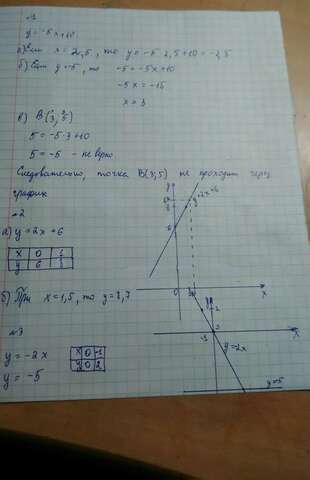 №1
y = -5x+10
а) Если x = 2,5, то y = -5 · 2,5+10 = -2,5
б) Если y = -5, то -5 = -5x+10
-5x = -15
x = 3
в) B(3; 5)
5 = -5·3+10
5 = -5 - не верно
Следовательно, точка B(3;5) не проходит через
график
№2
а) y = 2x+6
x 0 1
y 6 8
y=2x+6
б) При x = 1,5, то y =
0
x
№3
y = -2x
x 0 -1
y 0 2
y = -5
y=-2x
y=-5